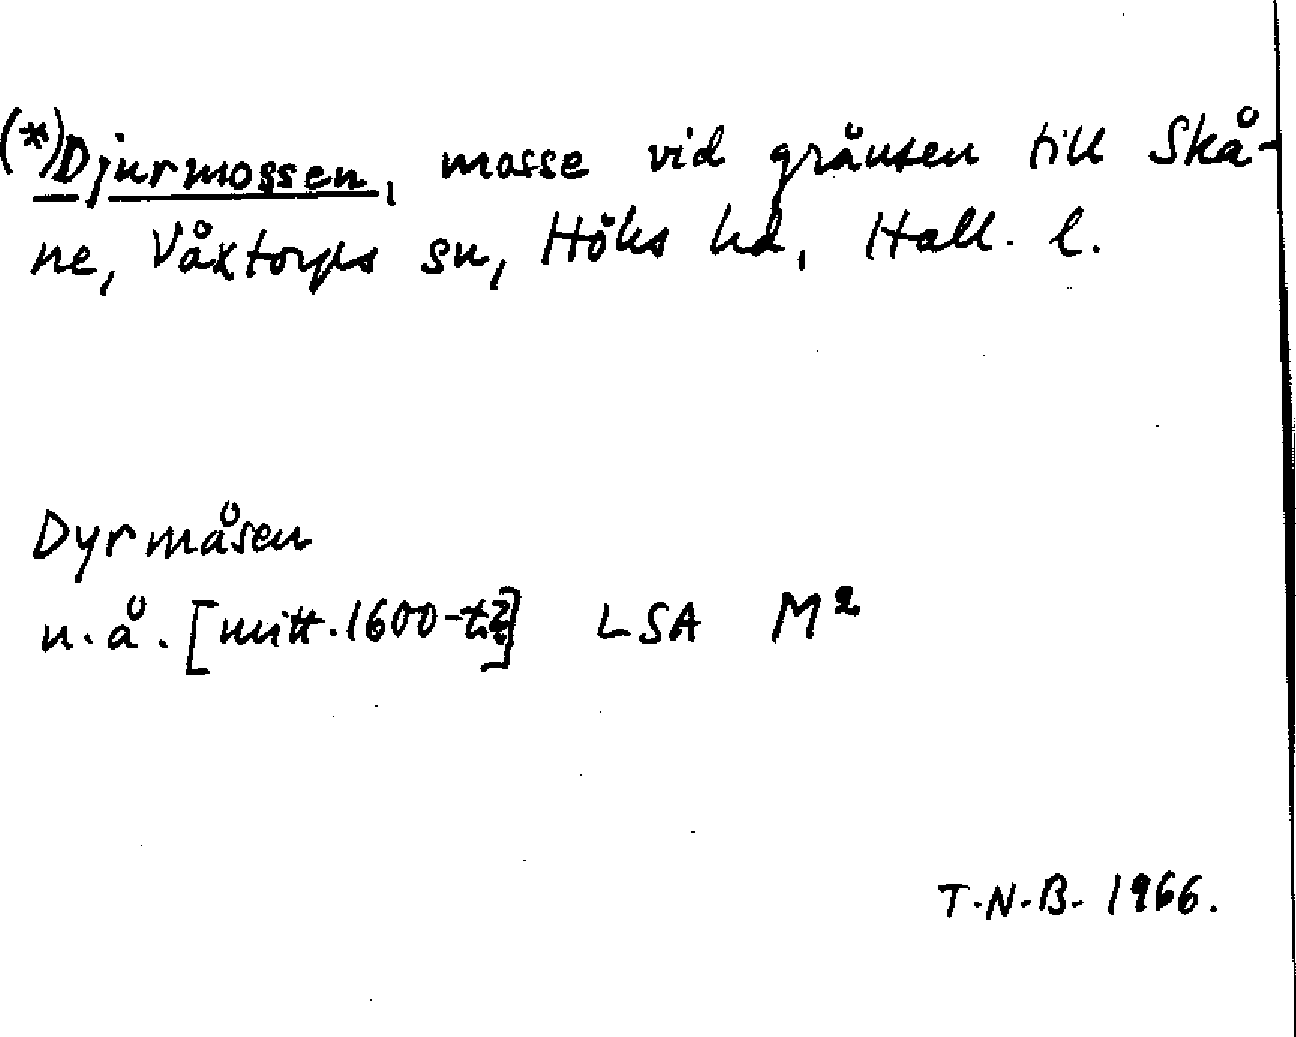 (*)Djurmossen, mosse vid gränsen till Skå-
ne, Växtorps sn, Höks hd, Hall. l.
Dyrmåsen
u.å. [mitt.1600-t.] LSA M²
T.N.B. 1966.